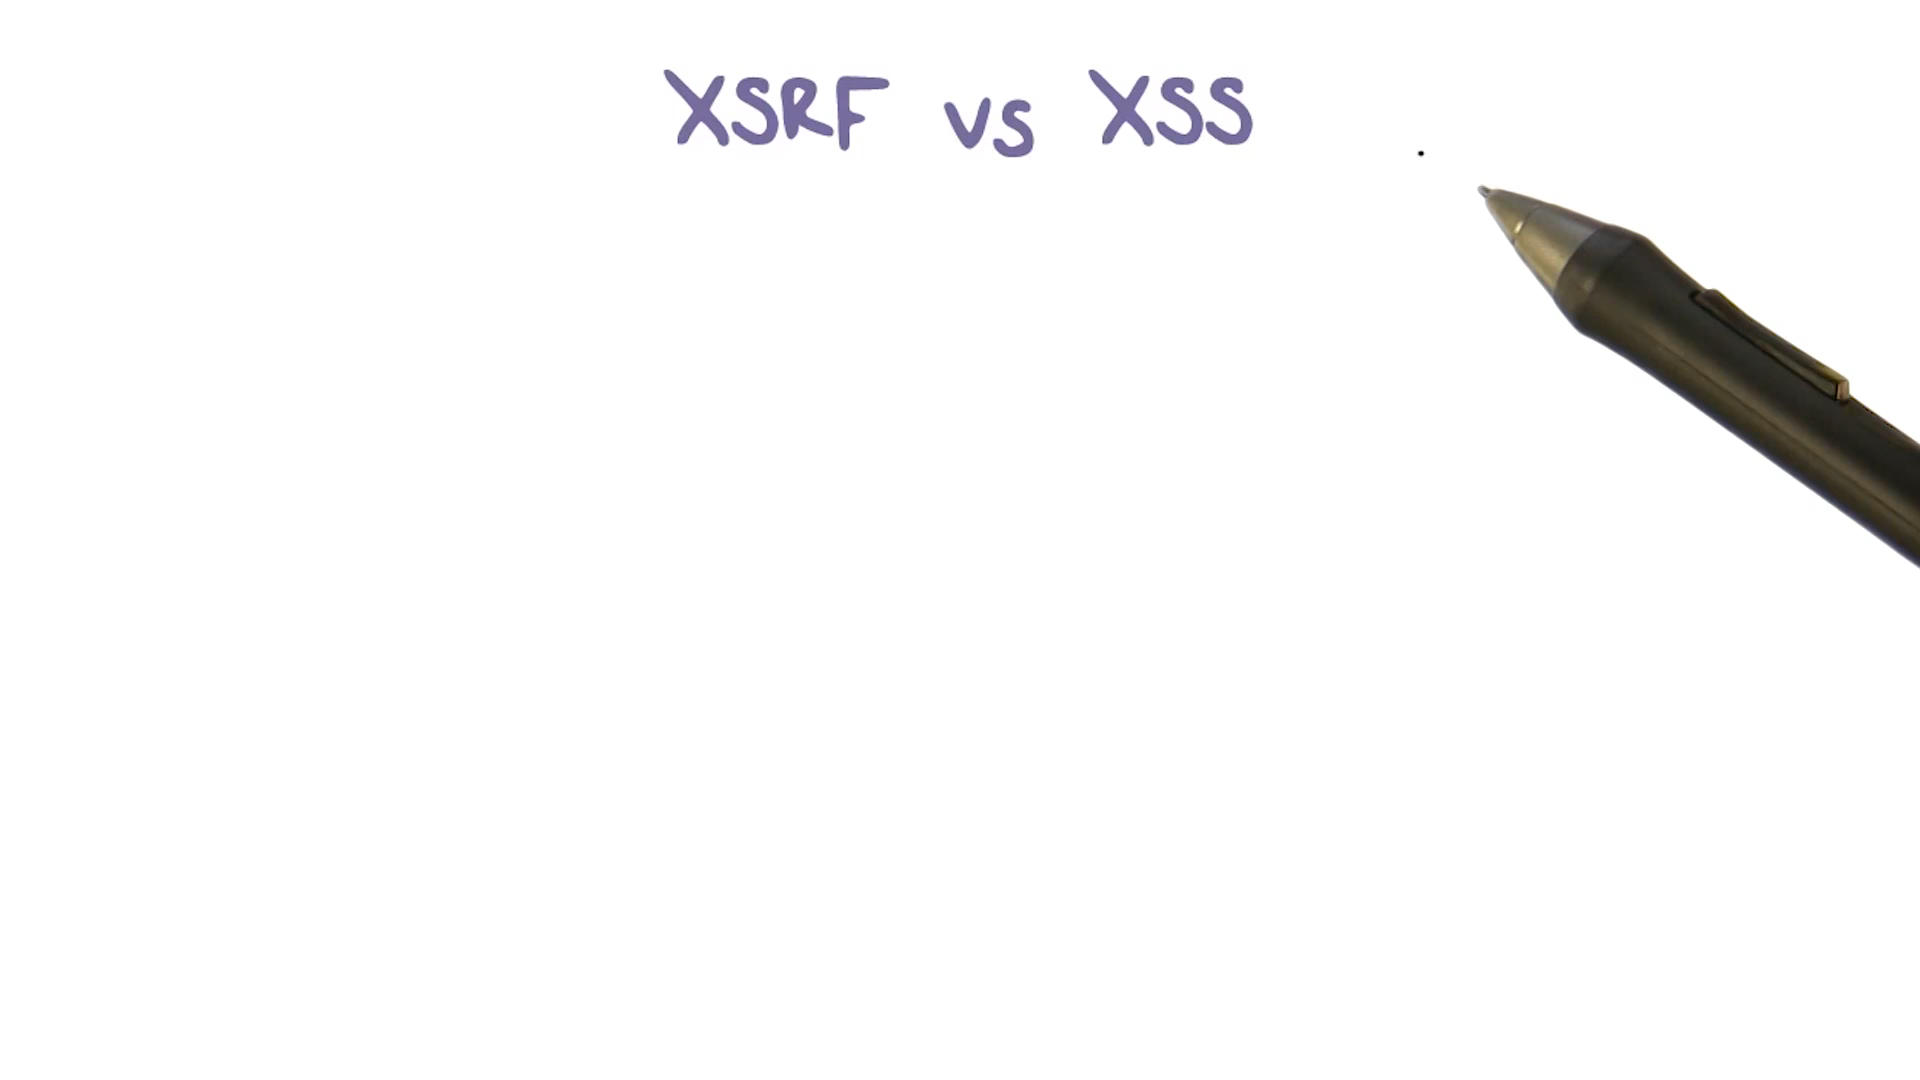 XSRF vs XSS